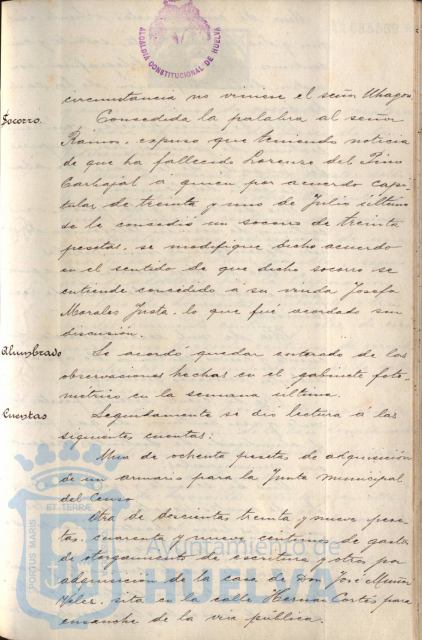 ALCALDIA CONSTITUCIONAL DE HUELVA
circunstancia no viniese el señor Uhagon
Socorro.
Concedida la palabra al señor
Ramos, expuso que teniendo noticia
de que ha fallecido Lorenzo del Pino
Carbajal á quien por acuerdo capi-
tular de treinta y uno de Julio último
se le concedió un socorro de treinta
pesetas, se modifique dicho acuerdo
en el sentido de que dicho socorro se
entiende concedido á su viuda Josefa
Morales Justa, lo que fué acordado sin
discusión.
Alumbrado
Se acordó quedar enterado de las
observaciones hechas en el gabinete foto-
métrico en la semana última.
Cuentas
Seguidamente se dió lectura á las
siguientes cuentas:
Una de ochenta pesetas de adquisición
de un armario para la Junta municipal
del Censo
Otra de doscientas treinta y nueve pese-
tas, cuarenta y nueve centimos de gastos
de otorgamiento de escritura y otros por
adquisición de la casa de Don José Muñoz
Velez, sita en la calle Hernan Cortés para
ensanche de la via pública.
PORTUS MARIS ET TERRÆ
Ayuntamiento de
HUELVA